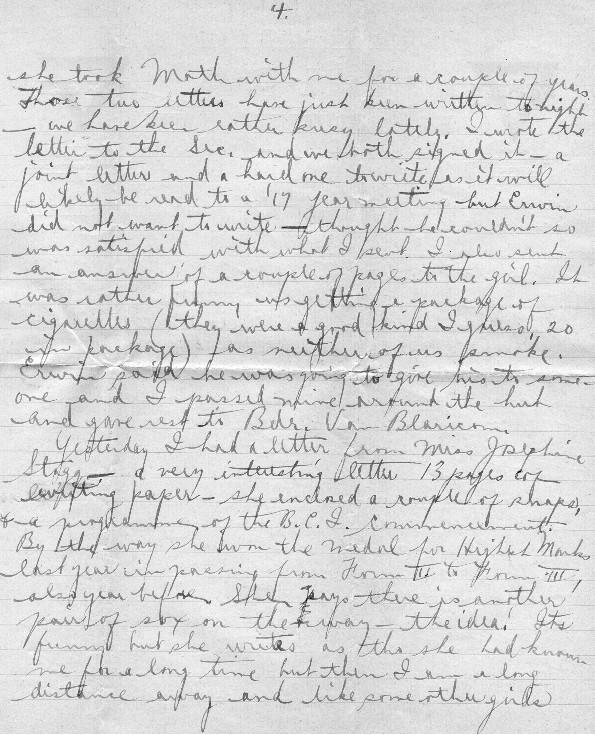 4.
she took Math with me for a couple of years.
Those two letters have just been written to-night
– we have been rather busy lately. I wrote the
letter to the Sec. and we both signed it – a
joint letter and a hard one to write as it will
likely be read to a '17 year meeting but Erwin
did not want to write – thought he couldn't so
was satisfied with what I sent. I also sent
an answer of a couple of pages to the girl. It
was rather funny us getting a package of
cigarettes (they were a good kind I guess, 20
in package) as neither of us smoke.
Erwin said he was going to give his to some-
one and I passed mine around the hut
and gave rest to Bdr. Van Blaricom.
Yesterday I had a letter from Miss Josephine
Stagg – a very interesting letter 13 pages of
writing paper – she enclosed a couple of snaps,
& a programme of the B.C.I. Commencement.
By the way she won the medal for Highest Marks
last year in passing from Form II to Form III,
also year before. She says there is another
pair of sox on the way – the idea! Its
funny but she writes as tho she had known
me for a long time but then I am a long
distance away and like some other girls